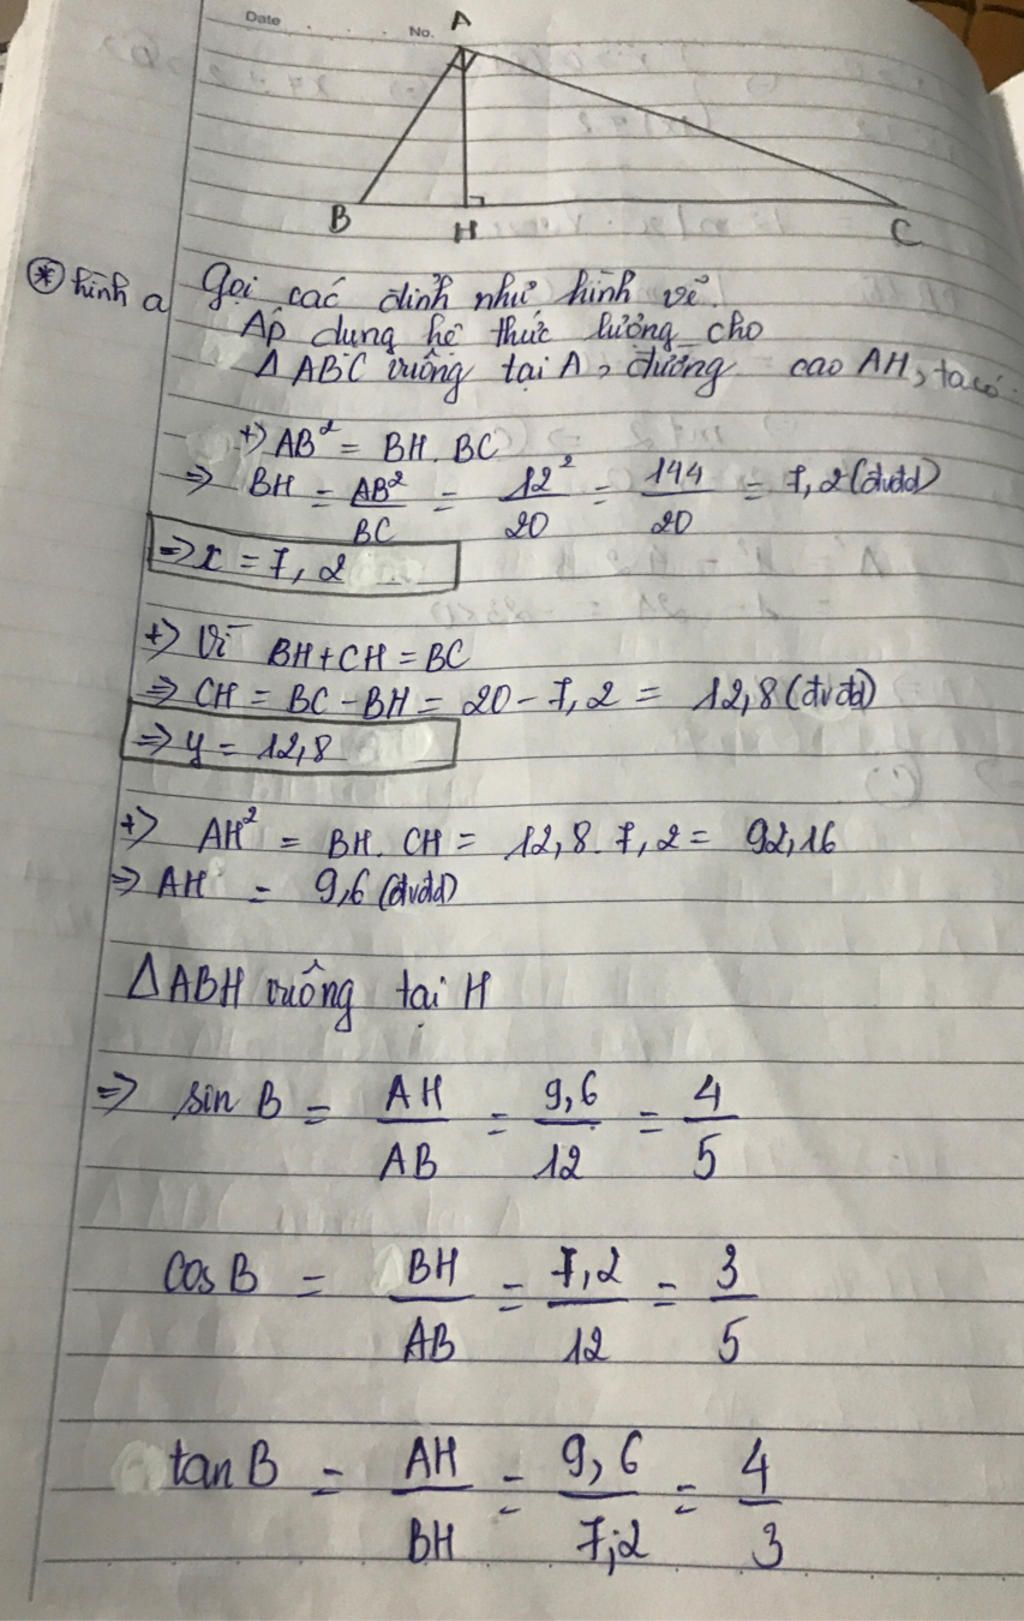 Date No.
A
B H C
* hình a Gọi các đỉnh như hình vẽ.
Áp dụng hệ thức lượng cho
Δ ABC vuông tại A, đường cao AH, ta có:
+) AB² = BH. BC
=> BH = AB²/BC = 12²/20 = 144/20 = 7,2 (đvđd)
=> x = 7,2
+) Vì BH + CH = BC
=> CH = BC - BH = 20 - 7,2 = 12,8 (đvđd)
=> y = 12,8
+) AH² = BH. CH = 12,8. 7,2 = 92,16
=> AH = 9,6 (đvđd)
ΔABH vuông tại H
=> sin B = AH/AB = 9,6/12 = 4/5
cos B = BH/AB = 7,2/12 = 3/5
tan B = AH/BH = 9,6/7,2 = 4/3